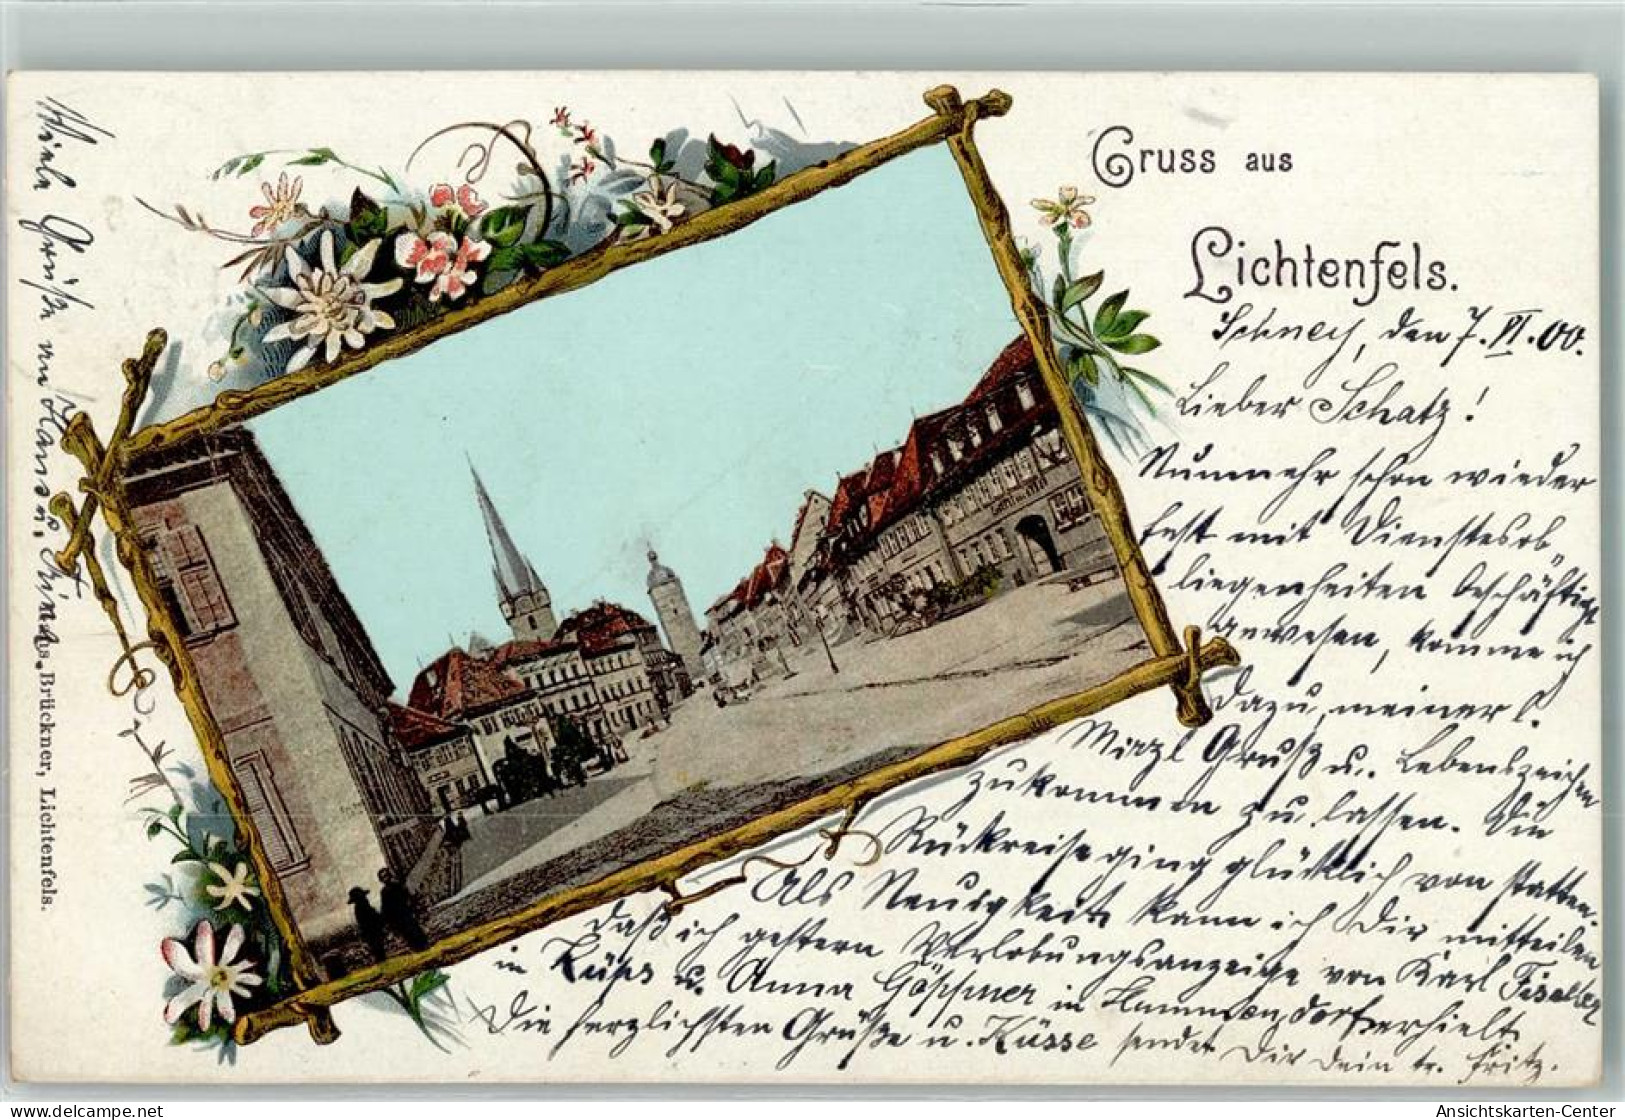 Gruss aus
Lichtenfels.
Schney, den 7. VI. 00.
Lieber Schatz!
Nunmehr schon wieder
fest mit Dienstesob„
liegenheiten beschäftigt
gewesen, komme ich
dazu, meiner l.
Mirzl Gruß u. Lebenszeichen
zukommen zu lassen. Die
Rückreise ging glücklich von statten.
Als Neuigkeit kann ich Dir mitteilen
daß ich gestern Verlobungsanzeige von Karl
in Küps u. Anna in erhielt.
Die herzlichsten Grüße u. Küsse sendet Dir Dein tr. Fritz.
Viele Grüße an
s. Brückner, Lichtenfels.
Ansichtskarten-Center